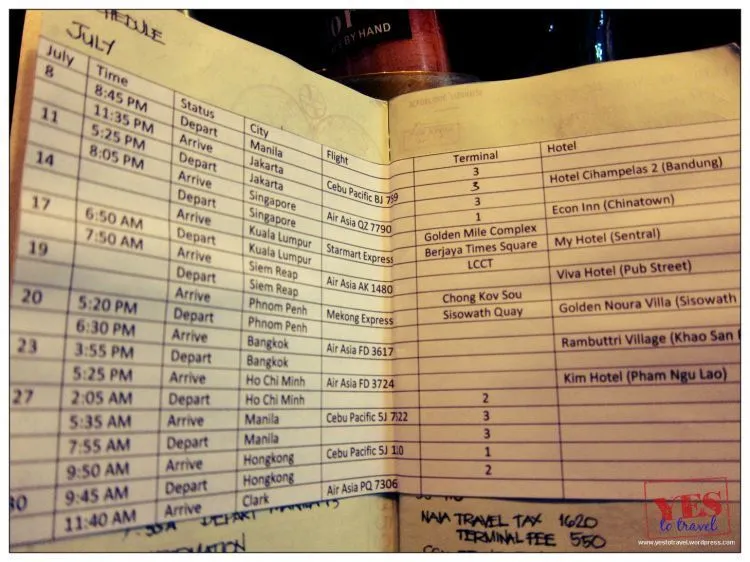 BY HAND
JULY
July Time Status City Flight Terminal Hotel
8 8:45 PM Depart Manila Cebu Pacific 3
11:35 PM Arrive Jakarta 3 Hotel Cihampelas 2 (Bandung)
11 5:25 PM Depart Jakarta Air Asia QZ 7790 3
8:05 PM Arrive Singapore 1 Econ Inn (Chinatown)
14 Depart Singapore Starmart Express Golden Mile Complex
Arrive Kuala Lumpur Berjaya Times Square My Hotel (Sentral)
17 6:50 AM Depart Kuala Lumpur Air Asia AK 1480 LCCT
7:50 AM Arrive Siem Reap Viva Hotel (Pub Street)
19 Depart Siem Reap Mekong Express Chong Kov Sou
Arrive Phnom Penh Sisowath Quay Golden Noura Villa (Sisowath
20 5:20 PM Depart Phnom Penh Air Asia FD 3617
6:30 PM Arrive Bangkok Rambuttri Village (Khao San
23 3:55 PM Depart Bangkok Air Asia FD 3724
5:25 PM Arrive Ho Chi Minh Kim Hotel (Pham Ngu Lao)
27 2:05 AM Depart Ho Chi Minh Cebu Pacific 5J 2
5:35 AM Arrive Manila 3
7:55 AM Depart Manila Cebu Pacific 5J 3
9:50 AM Arrive Hongkong 1
30 9:45 AM Depart Hongkong Air Asia PQ 7306 2
11:40 AM Arrive Clark
DEPART
NAIA TRAVEL TAX 1620
TERMINAL FEE 550
YES
to travel
www.yestotravel.wordpress.com